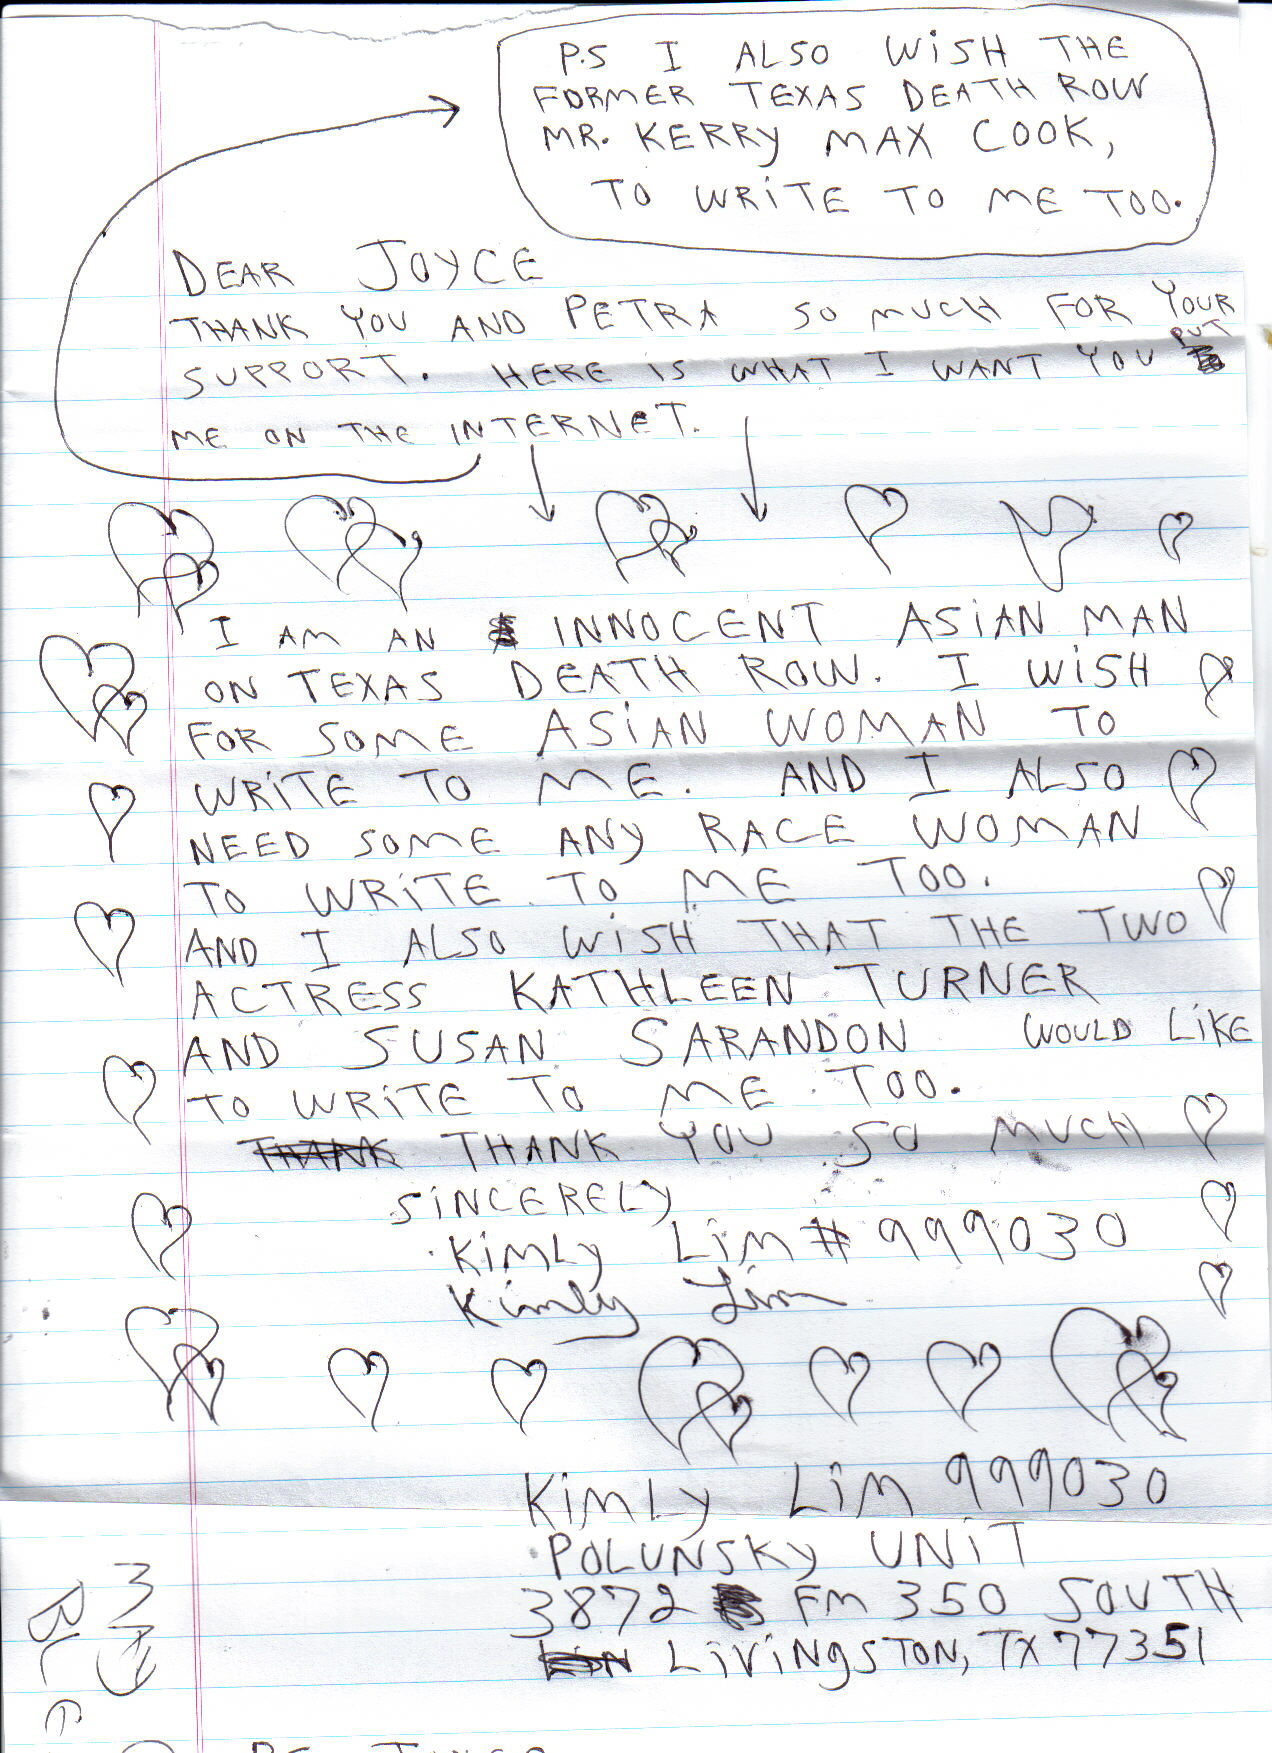 P.S I ALSO WISH THE
FORMER TEXAS DEATH ROW
MR. KERRY MAX COOK,
TO WRITE TO ME TOO.
DEAR JOYCE
THANK YOU AND PETRA SO MUCH FOR YOUR
SUPPORT. HERE IS WHAT I WANT YOU PUT
ME ON THE INTERNET.
I AM AN INNOCENT ASIAN MAN
ON TEXAS DEATH ROW. I WISH
FOR SOME ASIAN WOMAN TO
WRITE TO ME. AND I ALSO
NEED SOME ANY RACE WOMAN
TO WRITE TO ME TOO.
AND I ALSO WISH THAT THE TWO
ACTRESS KATHLEEN TURNER
AND SUSAN SARANDON WOULD LIKE
TO WRITE TO ME TOO.
THANK THANK YOU SO MUCH
SINCERELY
KIMLY LIM # 999030
Kimly Lim
KIMLY LIM 999030
POLUNSKY UNIT
3872 FM 350 SOUTH
LIVINGSTON, TX 77351